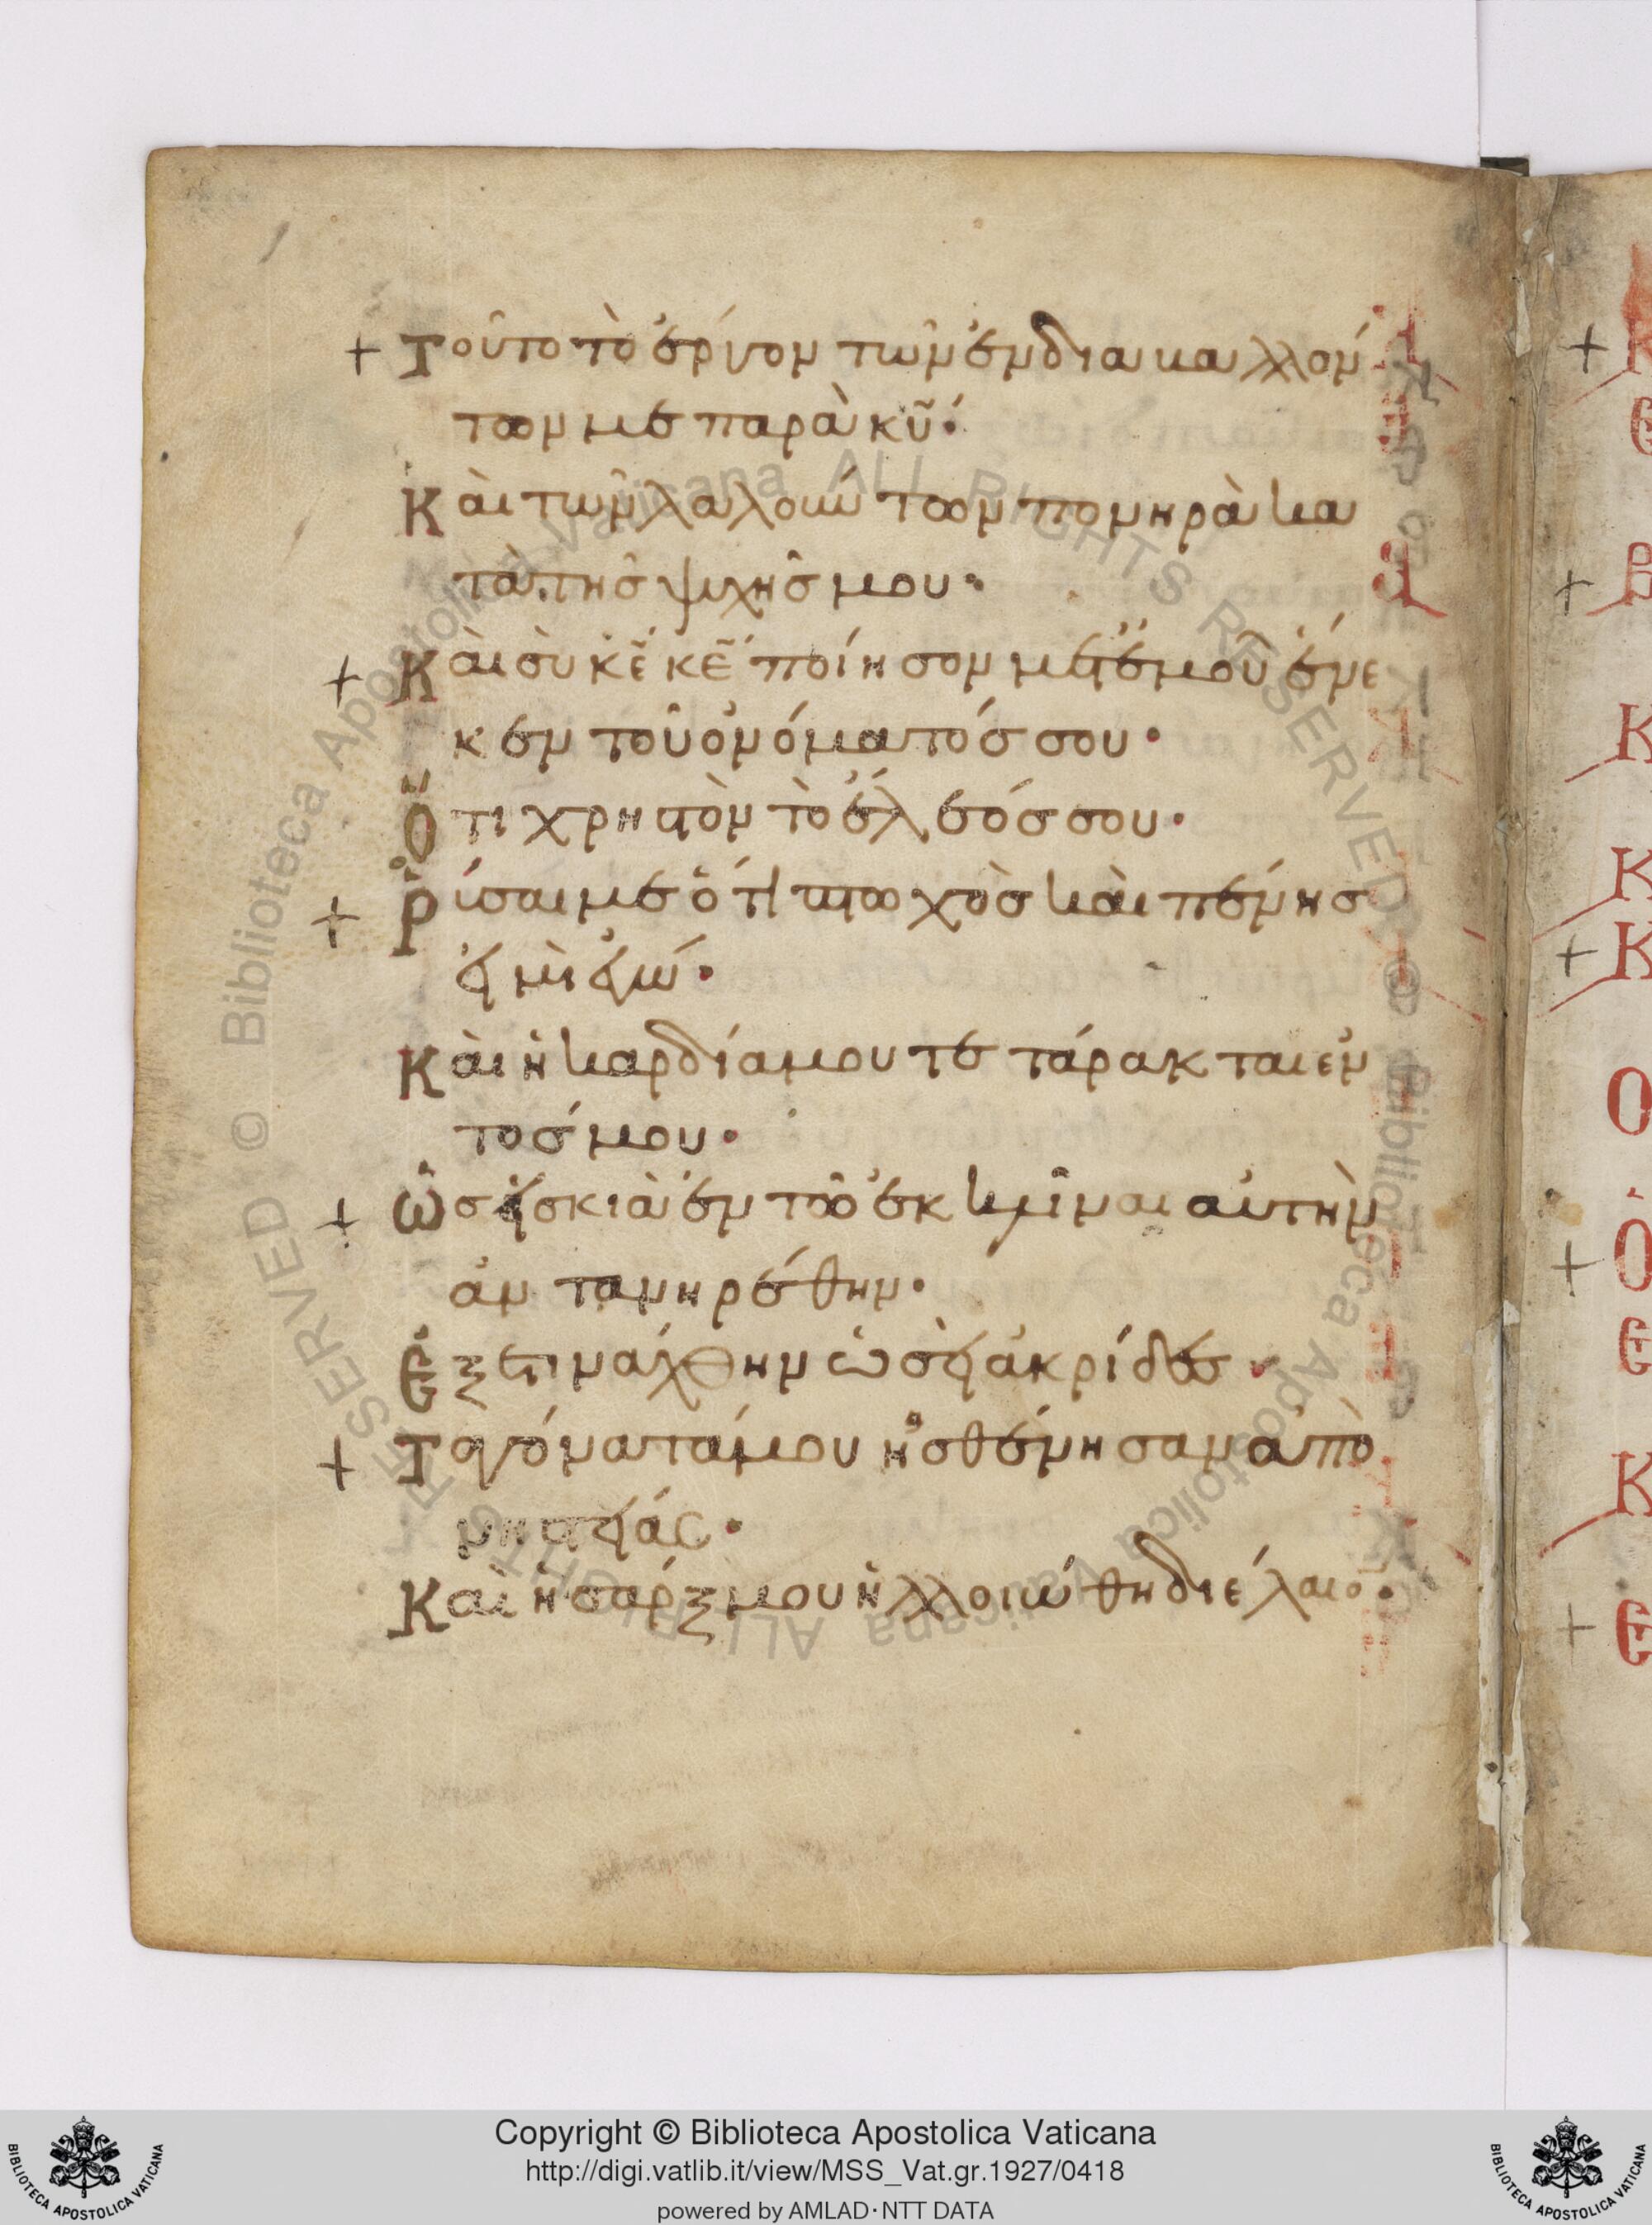 + Τοῦτο τὸ ἔργον τῶν ἐνδιαβαλλόν
των με παρὰ κ̅υ̅·
Καὶ τῶν λαλούντων πονηρὰ κα
τὰ τῆς ψυχῆς μου·
+ Καὶ σὺ κ̅ε̅ κ̅ε̅ ποίησον μετ' ἐμοῦ ἕνε
κεν τοῦ ὀνόματός σου·
Ὅτι χρηστὸν τὸ ἔλεός σου·
+ Ῥῦσαι με ὅτι πτωχὸς καὶ πένης
εἰμὶ ἐγώ·
Καὶ ἡ καρδία μου τετάρακται ἐν
τός μου·
+ Ὡσεὶ σκιὰ ἐν τῶ ἐκκλῖναι αὐτὴν
ἀντανηρέθην·
Ἐξετινάχθην ὡσεὶ ἀκρίδες·
+ Τὰ γόνατά μου ἠσθένησαν ἀπὸ
νηστείας·
Καὶ ἡ σάρξ μου ἠλλοιώθη δι ἔλαιον·
Copyright © Biblioteca Apostolica Vaticana
http://digi.vatlib.it/view/MSS_Vat.gr.1927/0418
powered by AMLAD·NTT DATA